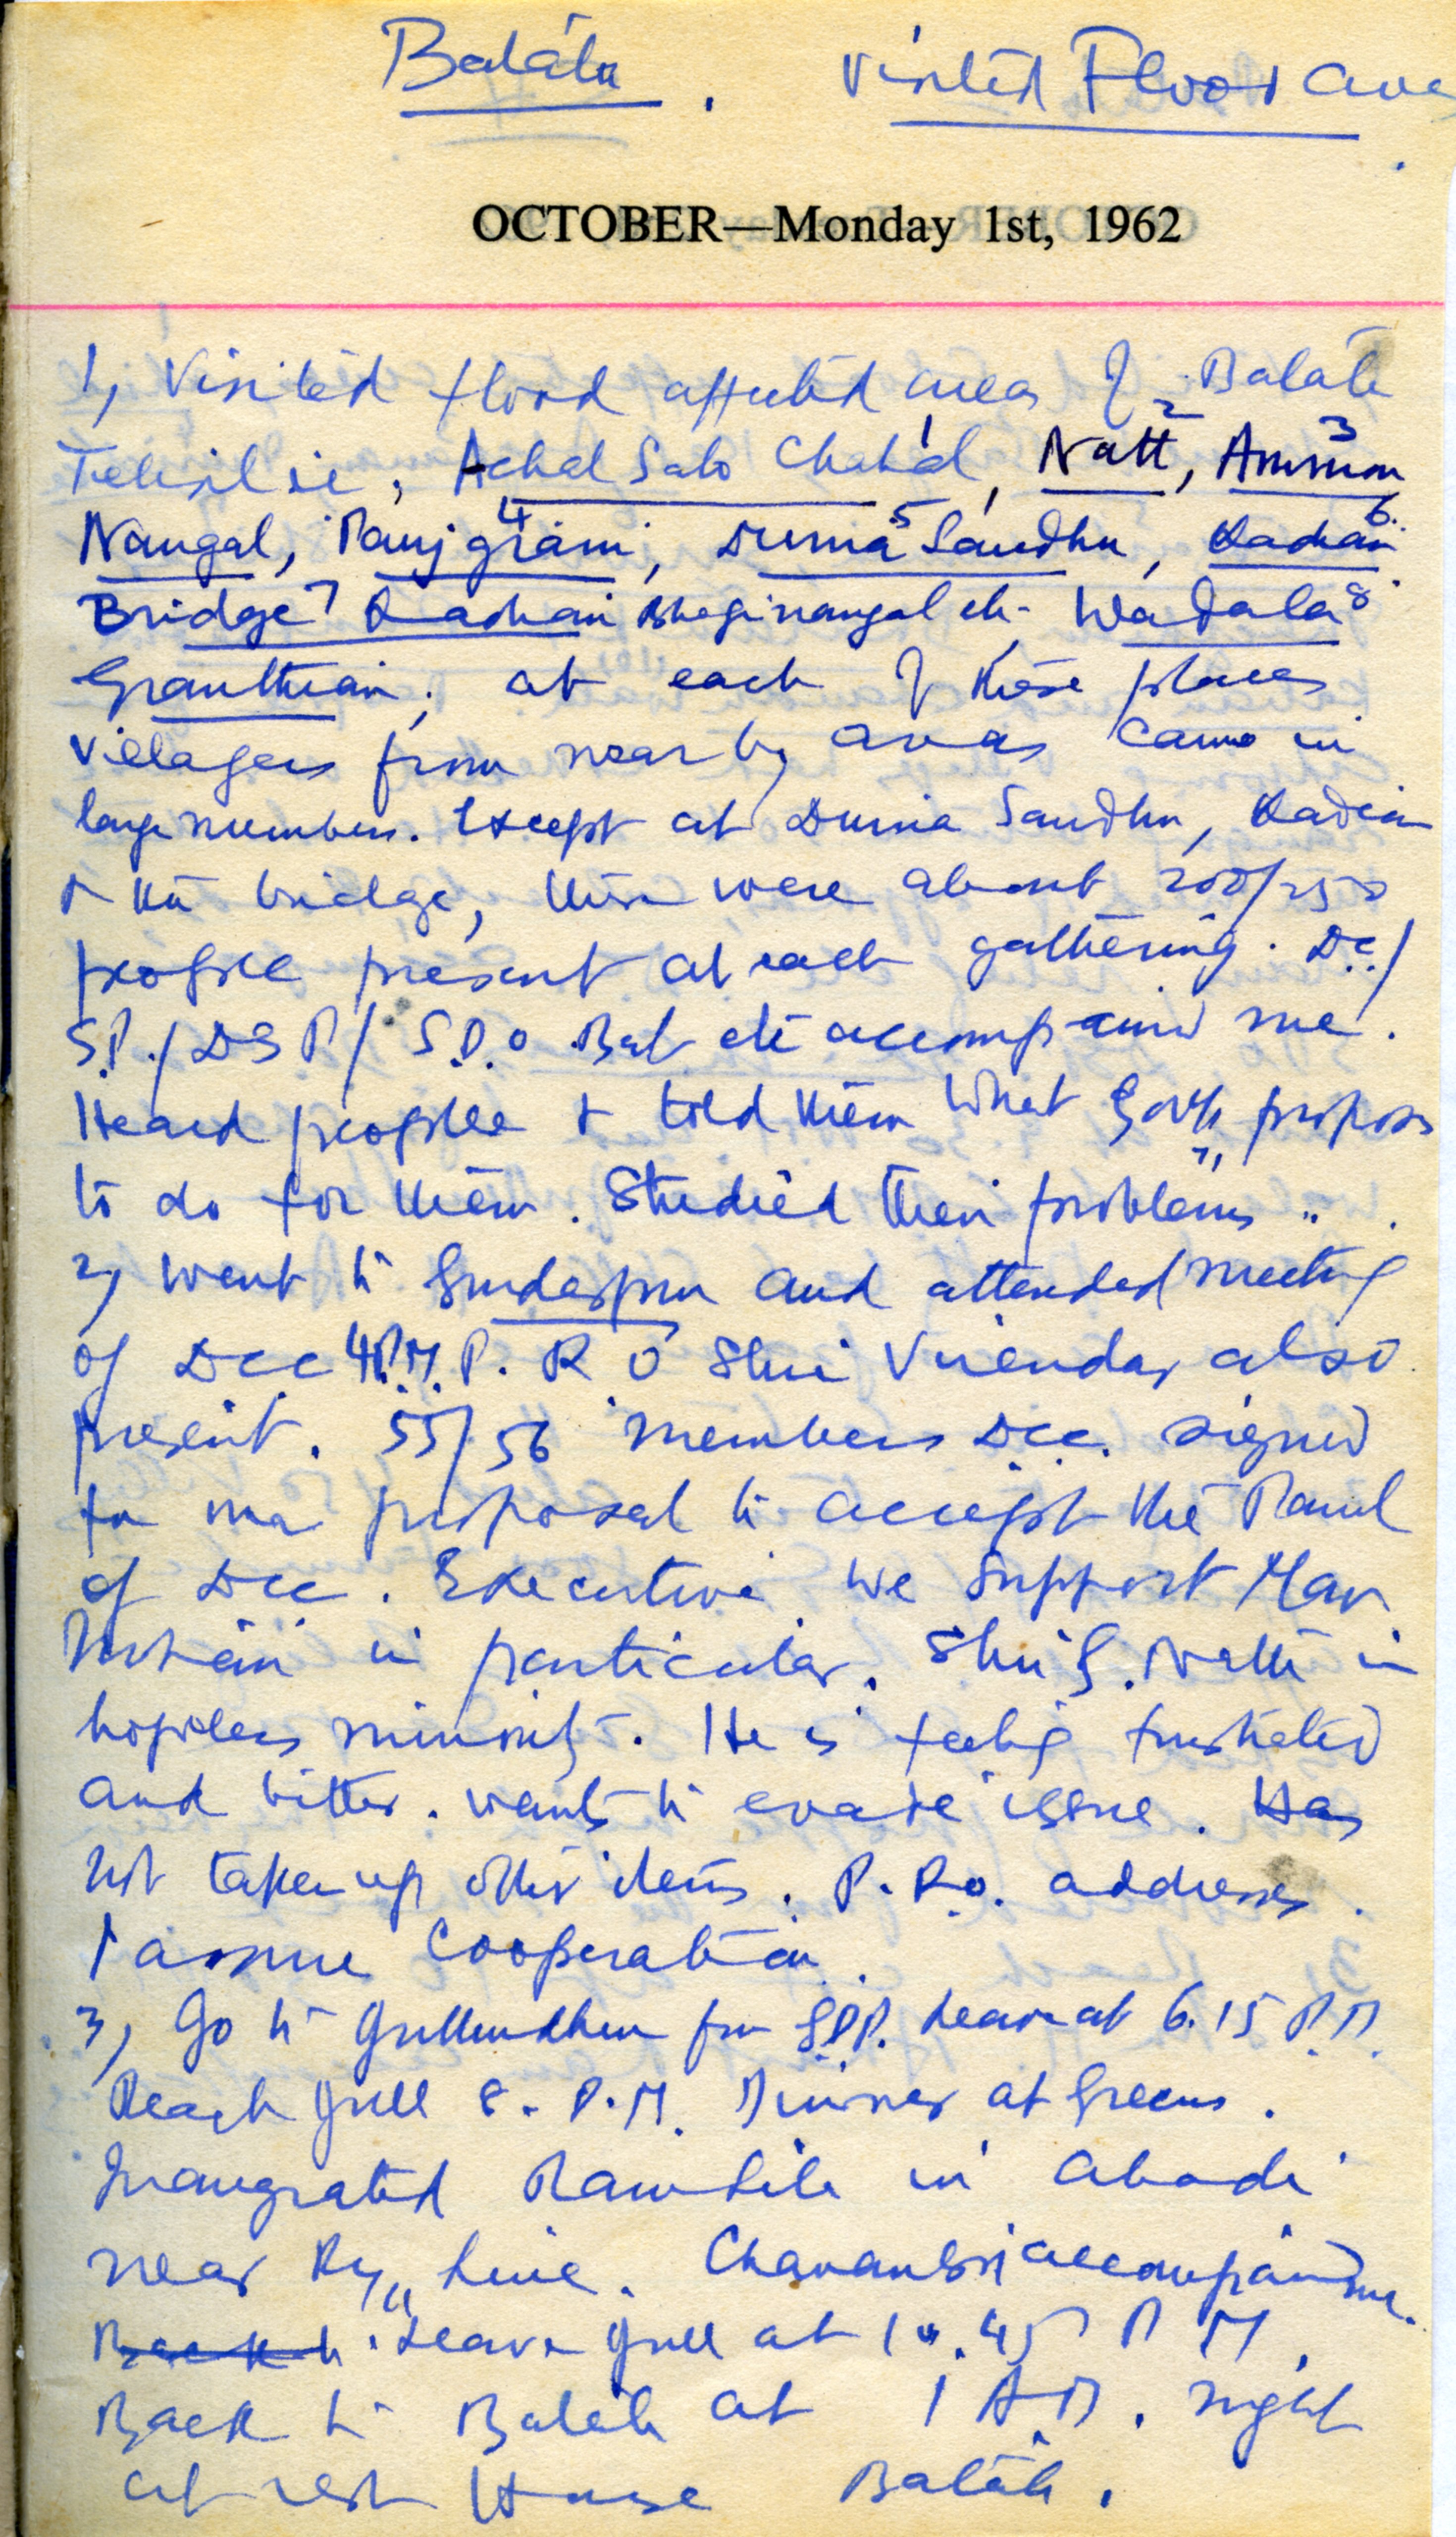 Batala. Visited Flood area
OCTOBER—Monday 1st, 1962
1, Visited flood affected area of Batala
Tehsil ie, Achal Sabo Chahal, Natt, Ammon
Nangal, Panjgrain, Duma Sandhu, Kadian
Bridge Kadian Bhaginangal etc. Wadala
Granthian, at each of these places
villagers from near by areas came in
large numbers. Except at Duma Sandhu, Kadian
+ the bridge, there were about 200/250
people present at each gathering. D.C./
S.P./DSP/ S.D.O Bat etc accompained me.
Heard people + told them what Govt, proposes
to do for them. Studied their problems.
2, Went to Gurdaspur and attended meeting
of DCC 4 P.M. P.R O Shri Virendar also
present. 55/56 members Dcc. signed
for proposal to accept the Panel
of Dcc. Executive we support
in particular. Shri G. Nath in
hopeless minority. He is feeling frustrated
and bitter. wants to evade issue. Has
not taken up other items. P.R.O. addresses.
+ assure Cooperation.
3, Go to Jullundhur for Leave at 6.15 P.M.
Reach Jull 8. P.M. Dinner at Greens.
Inaugrated Ramlila in abadi
near Ry,, Line. accompained me.
Back to Leave Jull at 10.45 P M.
Back to Batala at 1 A.M. night
at rest House Batala.